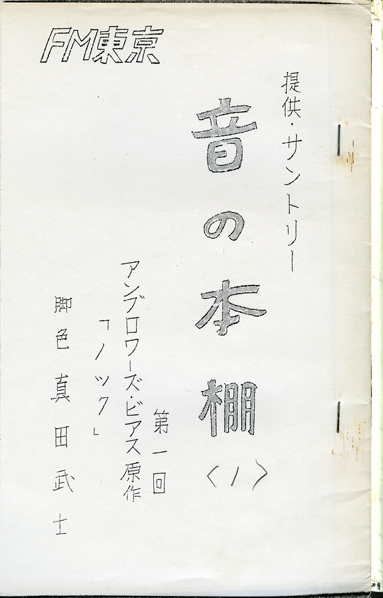 FM東京
提供・サントリー
音の本棚
〈1〉
第一回
アンブロワーズ・ビアス原作
「ノック」
脚色 真田武士